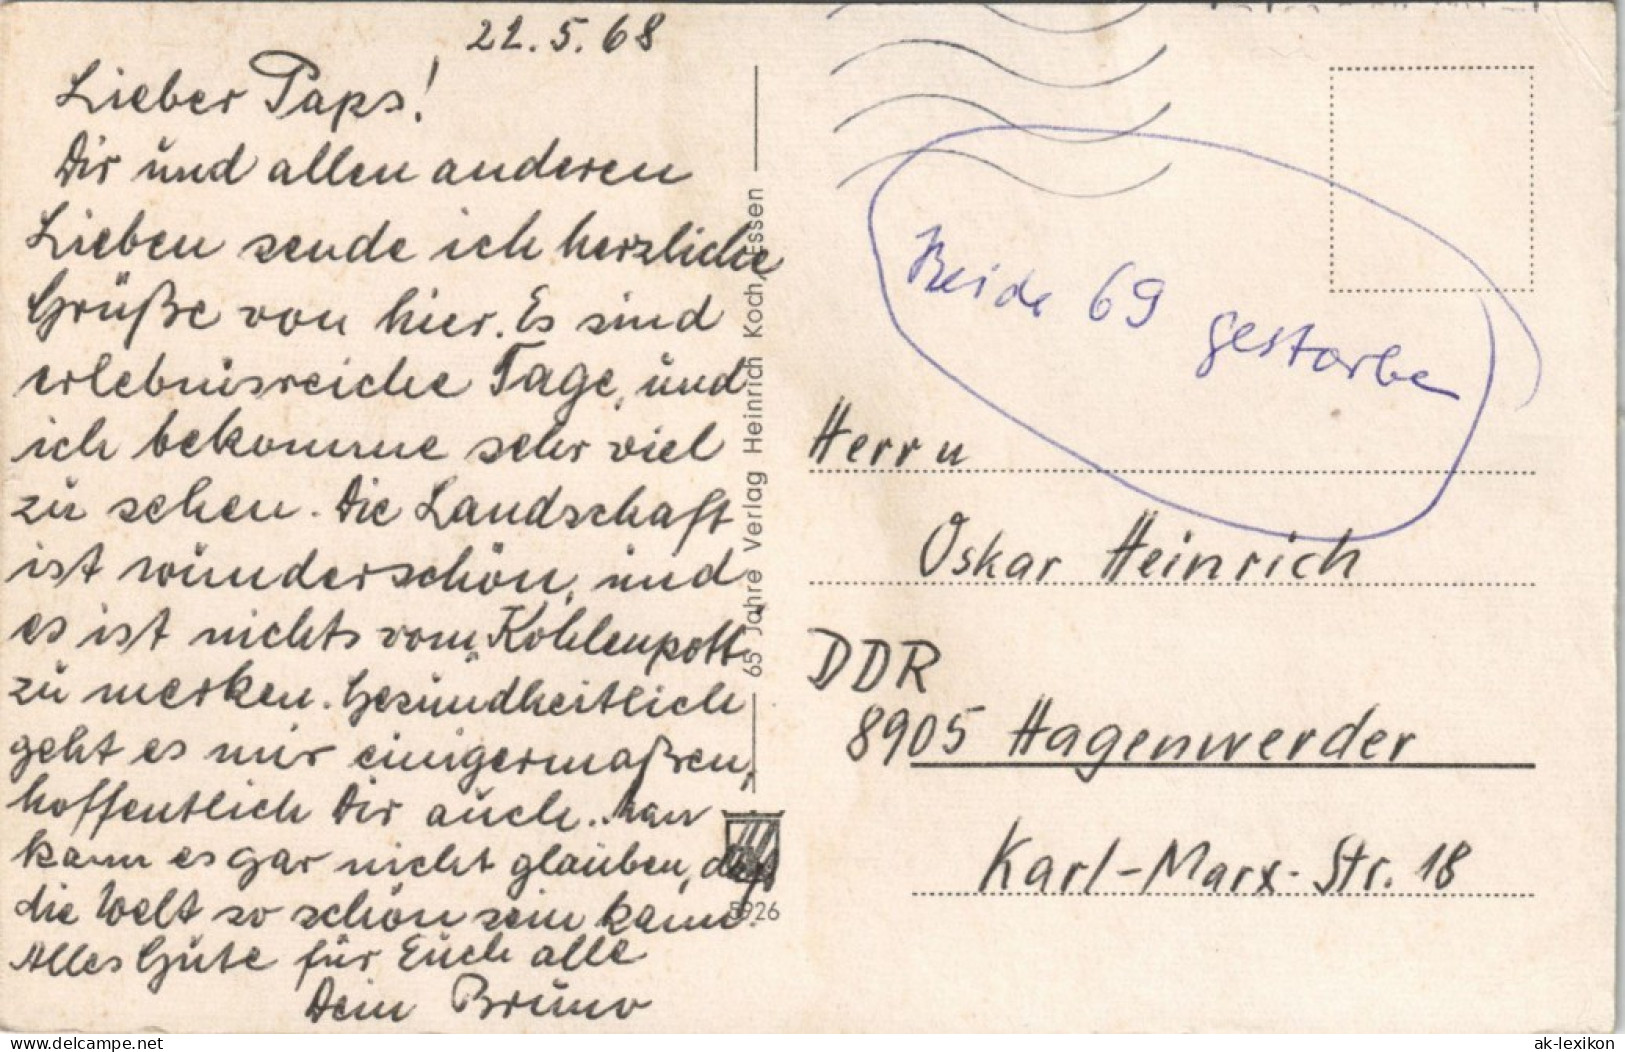 22.5.68
Lieber Paps!
Dir und allen anderen
Lieben sende ich herzliche
Grüße von hier. Es sind
erlebnisreiche Tage, und
ich bekomme sehr viel
zu sehen. Die Landschaft
ist wunderschön, und
es ist nichts vom Kohlenpott
zu merken. Gesundheitlich
geht es mir einigermaßen,
hoffentlich Dir auch. Man
kann es gar nicht glauben, daß
die Welt so schön sein kann.
Alles Gute für Euch alle
Dein Bruno
65 Jahre Verlag Heinrich Koch, Essen
5926
Beide 69 gestorben
Herrn
Oskar Heinrich
DDR
8905 Hagenwerder
Karl-Marx-Str. 18
www.delcampe.net
ak-lexikon